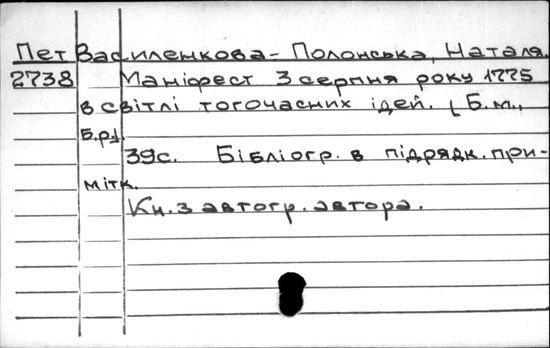 Пет Василенкова-Полонська, Наталя.
2738 Маніфест 3 серпня року 1775
в світлі тогочасних ідей. [Б.м.,
б.р.].
39с. Бібліогр. в підрядк. при-
мітк.
Кн. з автогр. автора.